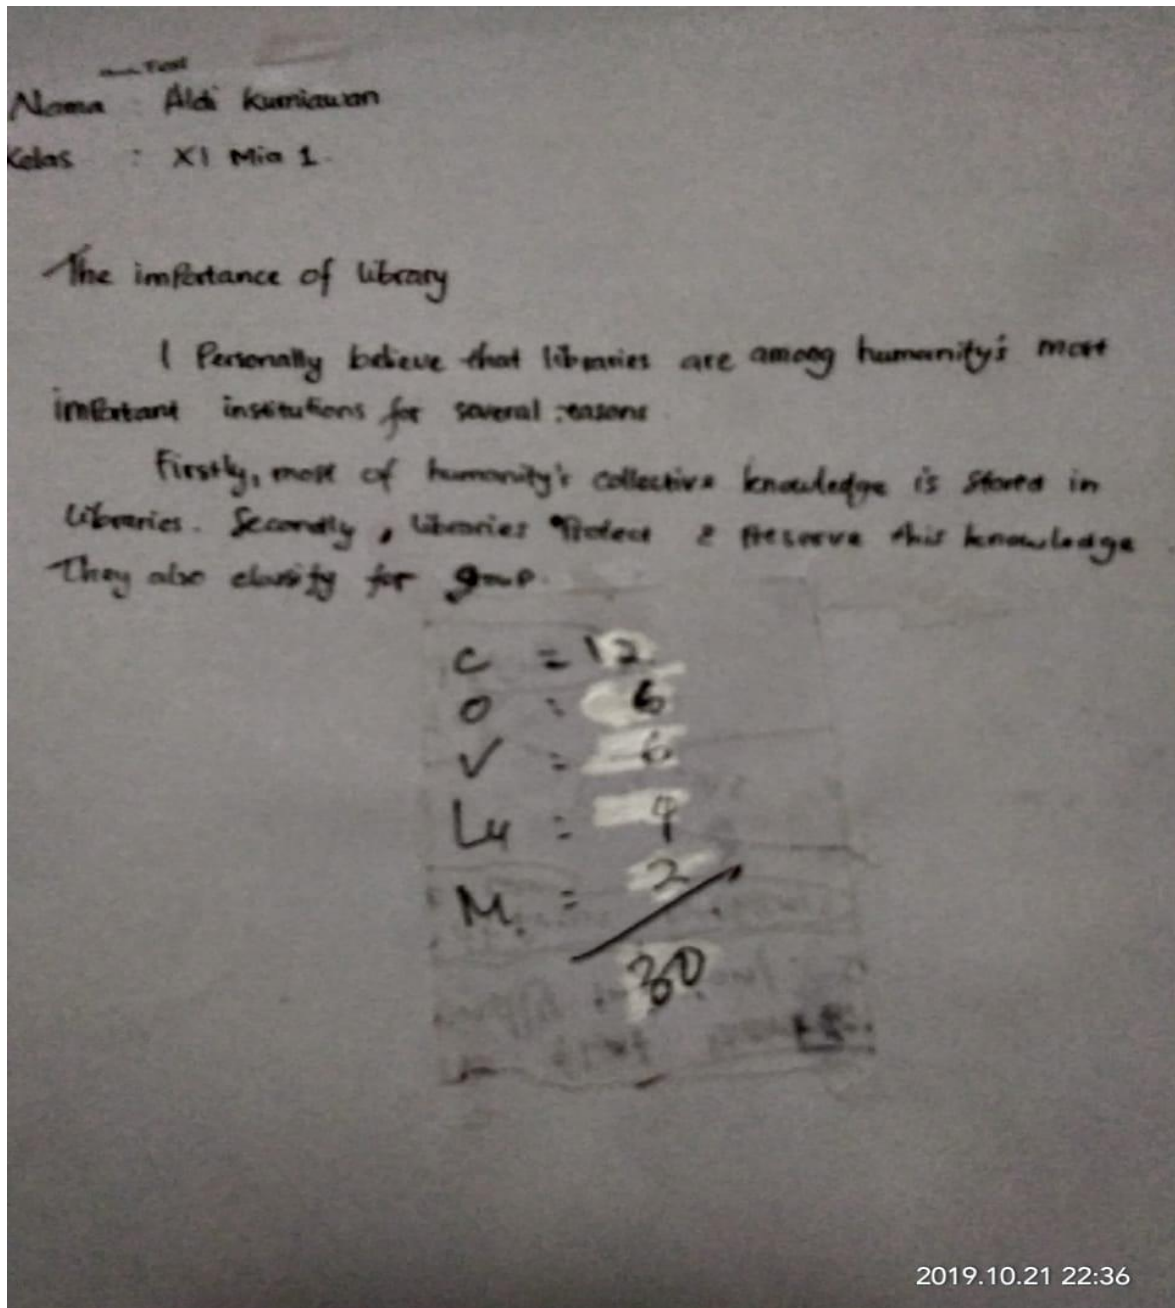 Test
Nama : Aldi Kurniawan
Kelas : XI Mia 1.
The importance of library
I Personally believe that libraries are among humanity's most
important institutions for several reasons
Firstly, most of humanity's collective knowledge is stored in
libraries. Secondly, libraries Protect & Preserve this knowledge
They also clarify for group.
C = 12
O : 6
V = 6
Lu : 4
M. = 2
30
2019.10.21 22:36